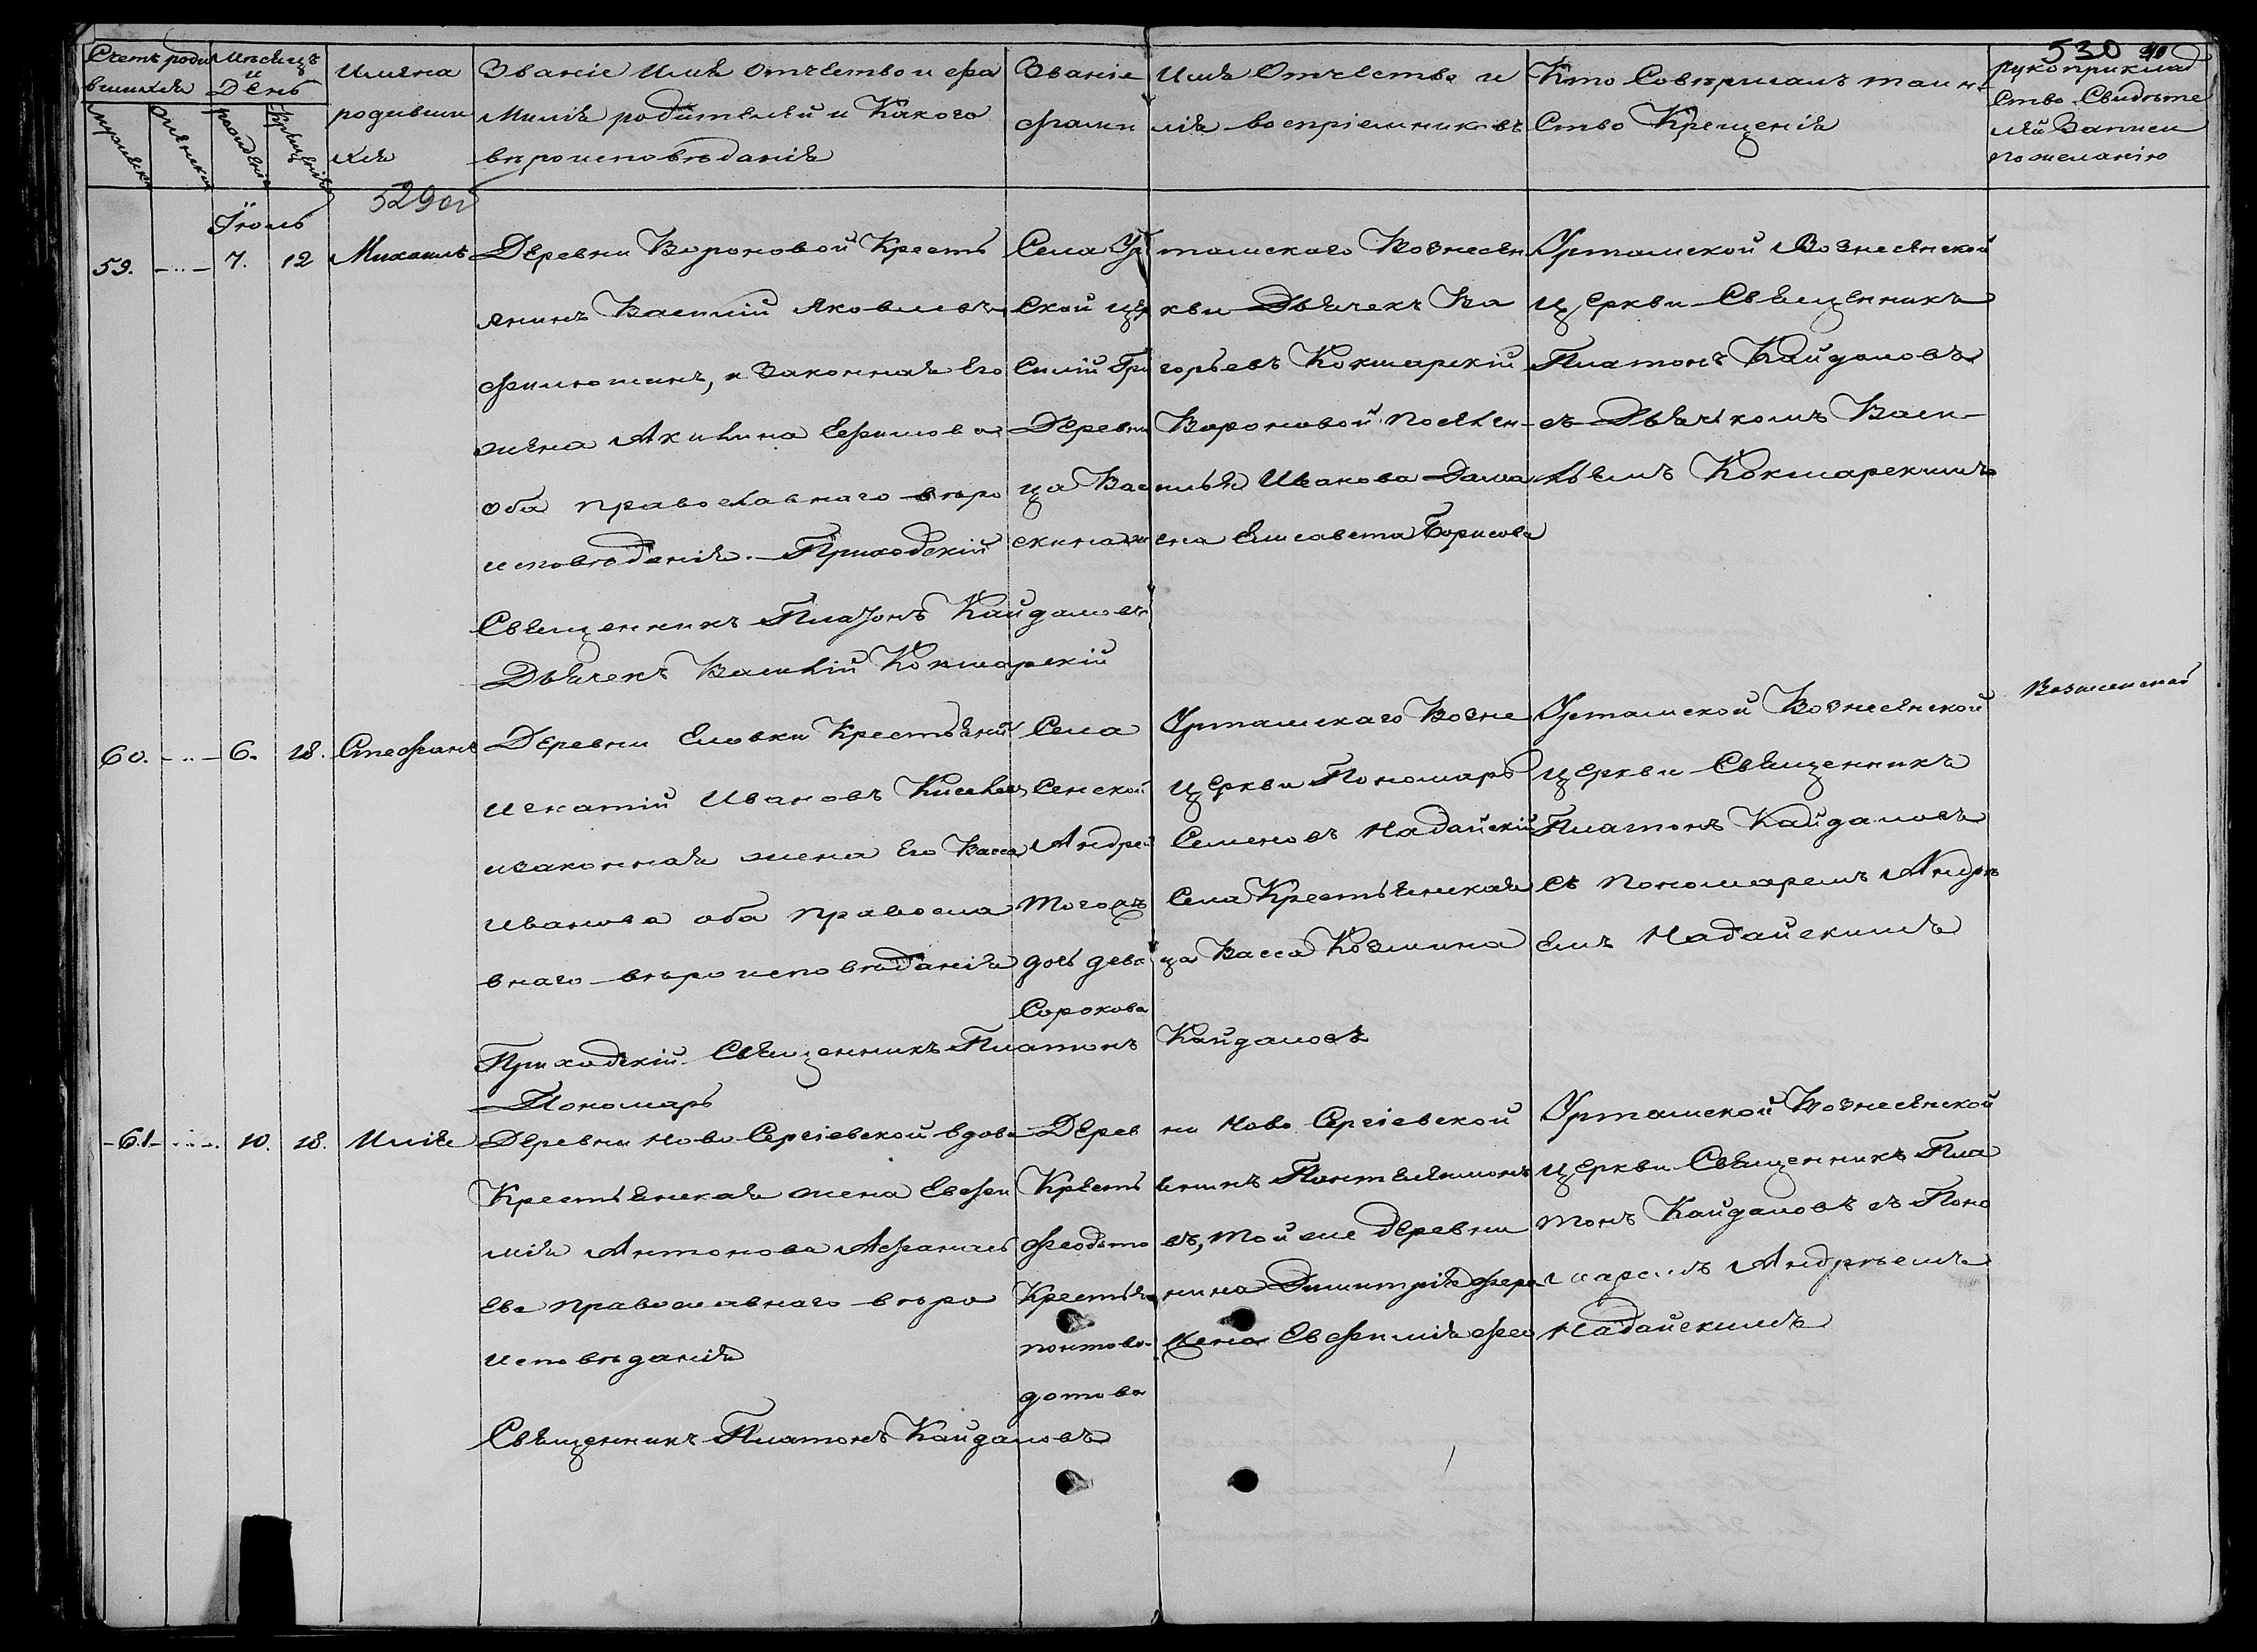 530
Счетъ роди
вшихся
Мѣсяцъ
и
День
Имяна
родивши
хся
Званіе Имя Отчество и фа
милія родителей и Какого
вѣроисповѣданія
Званіе Имя Отчество и
фамилія воспріемниковъ
Кто Совершалъ таин-
Ство Крещенія
рукоприклад
ство Свидѣте
лей Записи
по желанію
мужеска
женска
рожденія
Крещенія
529об
Іюль
59. 7. 12 Михаилъ
Деревни Вороновой Кресть
янинъ Василій Яковлевъ
Филюшинъ, и Законная Его
жена Акилина Ефимова
оба православнаго вѣро
исповѣданія. Приходскій
Священникъ Платонъ Кайдаловъ
Дьячекъ Василій Кокшарскій
Села Уртамскаго Вознесен
ской церкви Дьячекъ Ва
силій Григорьевъ Кокшарскій
Деревни Вороновой поселен-
ца Василья Иванова
жена Елисавета Борисова
Уртамской Вознесенской
Церкви Священникъ
Платонъ Кайдаловъ
съ Дьячькомъ Васи-
льемъ Кокшарскимъ
60. 6. 18. Стефанъ
Деревни Еловки Крестьянинъ
Игнатій Ивановъ Киселевъ
и законная жена Его Васса
Иванова оба правосла
внаго вѣроисповѣданія
Приходскій Священникъ Платонъ Кайдаловъ
Пономарь
Села Уртамскаго Возне
сенской Церкви Пономарь
Андрей Семеновъ Надайскій
Того жъ Села Крестьянская
дочь девица Васса Козмина
Сорокова
Уртамской Вознесенской
Церкви Священникъ
Платонъ Кайдаловъ
Съ Пономаремъ Андрѣ
емъ Надайскимъ
61. 10. 18. Илія
Деревни Ново Сергіевской вдова
Крестьянская жена Евфи
мія Антонова Афанась
ева православнаго вѣро
исповѣданія
Священникъ Платонъ Кайдаловъ
Деревни Ново Сергіевской
Крестьянинъ Пантелеимонъ
Феодотовъ, той же деревни
Крестьянина Димитрія Фера
понтова жена Евфимія Фео
дотова
Уртамской Вознесенской
Церкви Священникъ Пла
тонъ Кайдаловъ съ Поно
маремъ Андрѣемъ
Надайскимъ